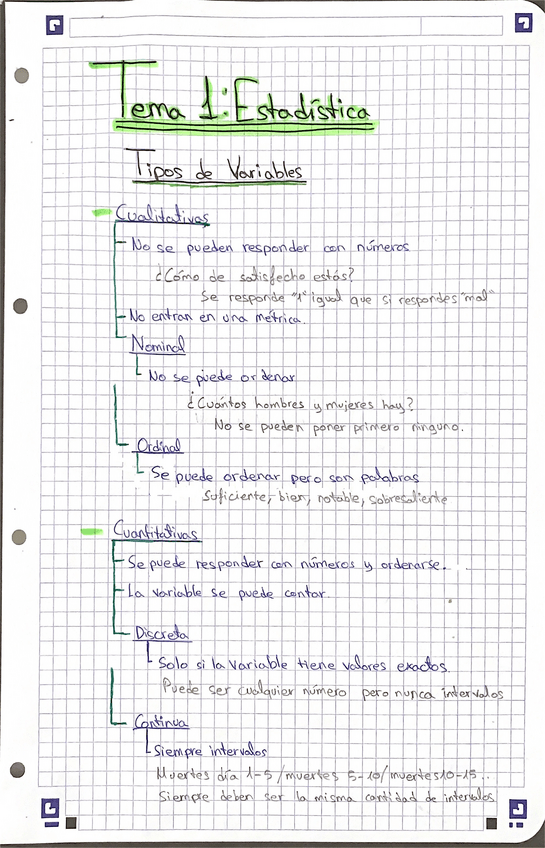 Tema 1: Estadística
Tipos de Variables
Cualitativas
No se pueden responder con números
¿Cómo de satisfecho estás?
Se responde "1" igual que si respondes "mal"
No entran en una métrica.
Nominal
No se puede ordenar
¿Cuántos hombres y mujeres hay?
No se pueden poner primero ninguno.
Ordinal
Se puede ordenar pero son palabras
Suficiente, bien, notable, sobresaliente
Cuantitativas
Se puede responder con números y ordenarse.
La variable se puede contar.
Discreta
Solo si la variable tiene valores exactos.
Puede ser cualquier número pero nunca intervalos
Continua
Siempre intervalos
Muertes día 1-5/muertes 5-10/muertes10-15..
Siempre deben ser la misma cantidad de intervalos